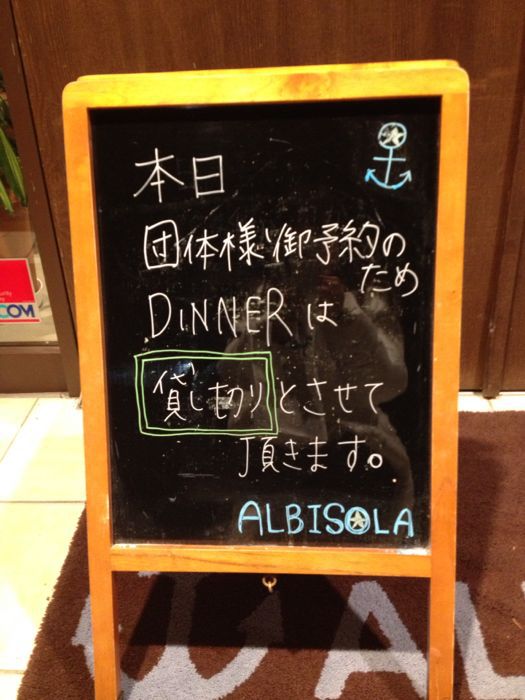 本日
団体様御予約の
ため
DINNERは
貸し切りとさせて
頂きます。
ALBISOLA
COM